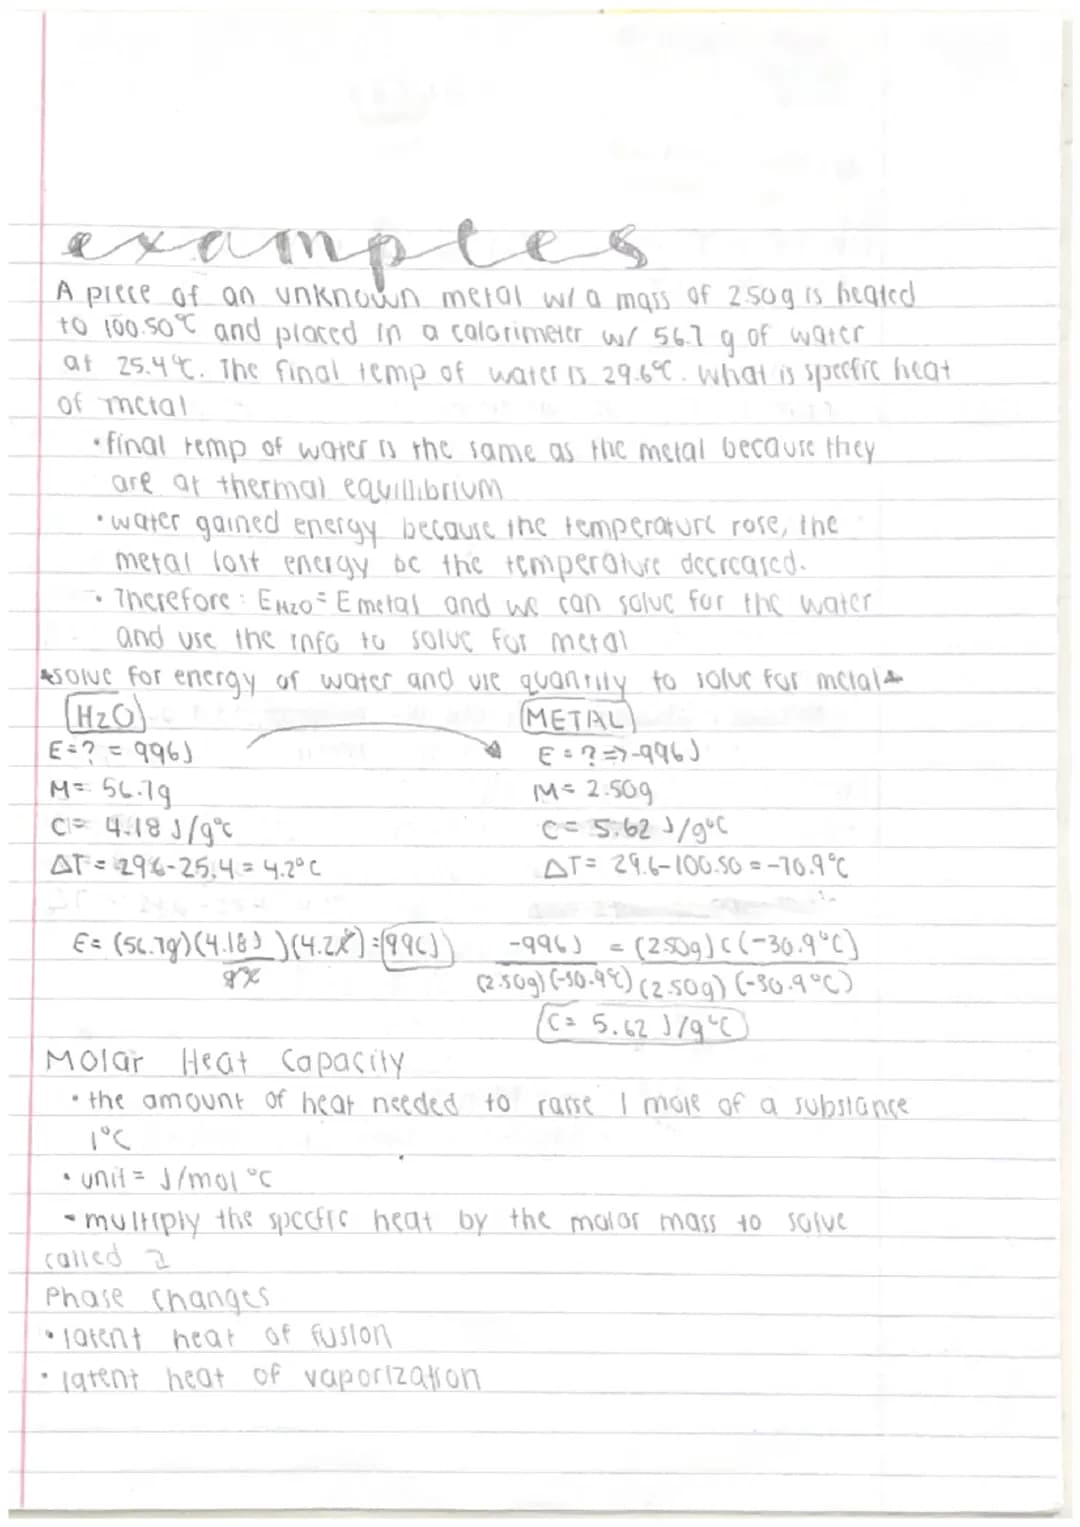 examples
A piece of an unknown metal w/ a mass of 2.50g is heated
to 100.50°C and placed in a calorimeter w/ 56.7 g of water
at 25.4°C. The final temp of water is 29.6°C. What is specfic heat
of metal
• final temp of water is the same as the metal because they
are at thermal equillibrium
• water gained energy because the temperature rose, the
metal lost energy bc the temperature decreased.
• Therefore: EH2O = E metal and we can solve for the water
and use the info to solve for metal
*solve for energy of water and use quantity to solve for metal*
H2O METAL
E=? = 996J E = ? => -996J
M= 56.7g M= 2.50g
C= 4.18 J/g°C C= 5.62 J/g°C
ΔT = 29.6-25.4 = 4.2°C ΔT= 29.6-100.50 = -70.9°C
E= (56.7g)(4.18J)(4.2°C) = 996J -996J = (2.50g)C(-30.9°C)
g°C (2.50g)(-30.9°C) (2.50g)(-30.9°C)
C= 5.62 J/g°C
Molar Heat Capacity
• the amount of heat needed to raise 1 mole of a substance
1°C
• unit = J/mol °C
- multiply the specfic heat by the molar mass to solve
called
Phase changes
• latent heat of fusion
• latent heat of vaporization